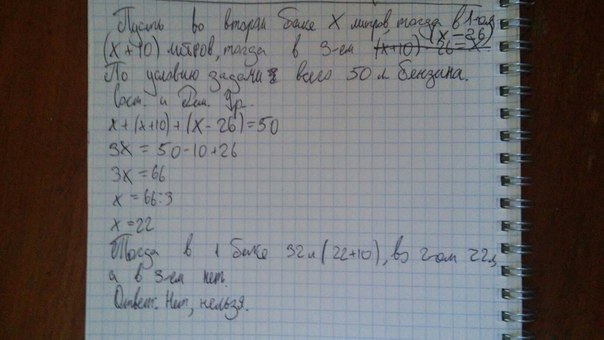 Пусть во втором баке x литров, тогда в 1-ом
(x+10) литров, тогда в 3-ем (x+10) - 26 = x (x-26)
По условию задачи всего 50 л бензина.
Сост. и Реш. Ур.
x+(x+10)+(x-26)=50
3x = 50-10+26
3x = 66
x = 66:3
x = 22
Тогда в 1 баке 32 л (22+10), во 2-ом 22 л,
а в 3-ем нет.
Ответ. Нет, нельзя.